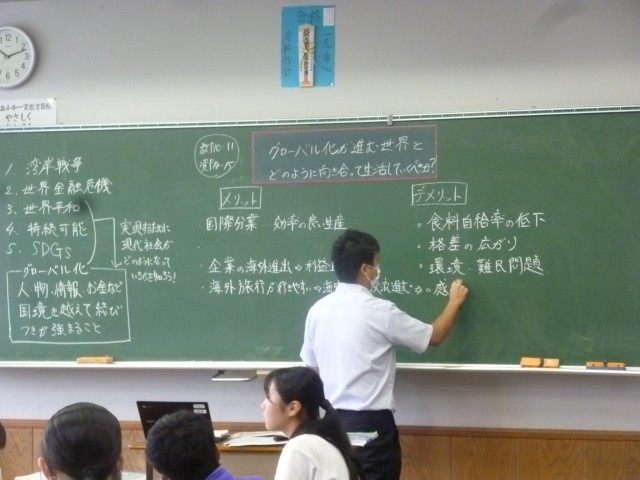 合格
やさしく
教P10・11
資P.14・15
グローバル化が進む世界と
どのように向き合って生活していくべきか?
1. 湾岸戦争
2. 世界金融危機
3. 世界平和
4. 持続可能
5. SDGs
グローバル化
人、物、情報、お金など
国境を越えて結び
つきが強まること
現代社会が
どのようになって
いるのか知ろう!
メリット
国際分業…効率の良い生産
・企業の海外進出⇒利益
・海外旅行が行きやすい⇒
交流進む⇒
デメリット
食料自給率の低下
格差の広がり
環境・難民問題
感